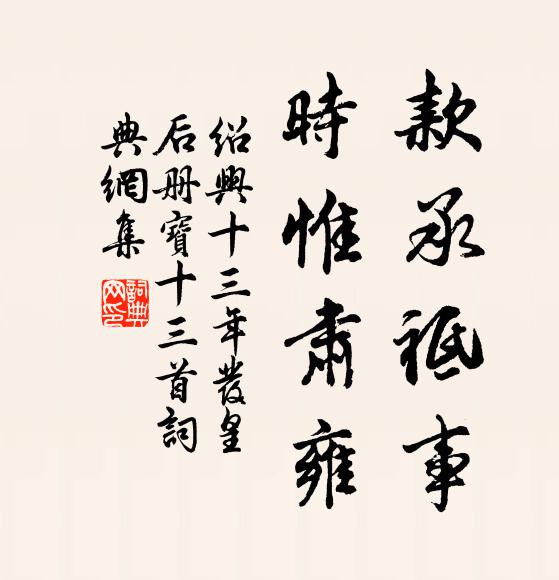 款承祗事
時惟肅雍
紹興十三年發皇
后册寶十三首詞
典網集
詞典网印